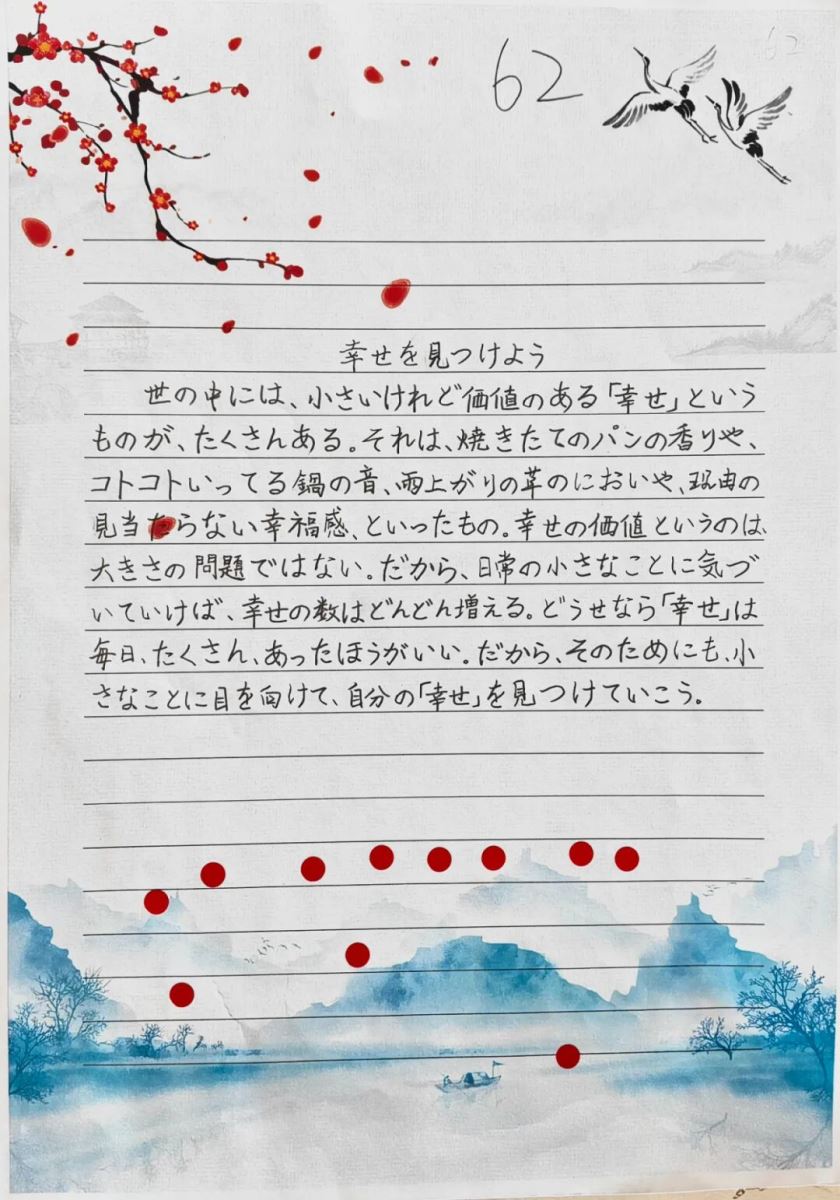 62
62
幸せを見つけよう
世の中には、小さいけれど価値のある「幸せ」という
ものが、たくさんある。それは、焼きたてのパンの香りや、
コトコトいってる鍋の音、雨上がりの草のにおいや、理由の
見当たらない幸福感、といったもの。幸せの価値というのは、
大きさの問題ではない。だから、日常の小さなことに気づ
いていけば、幸せの数はどんどん増える。どうせなら「幸せ」は
毎日、たくさん、あったほうがいい。だから、そのためにも、小
さなことに目を向けて、自分の「幸せ」を見つけていこう。